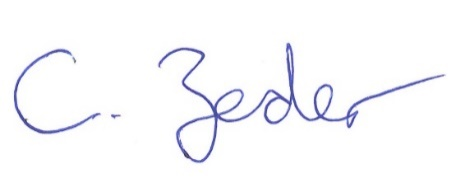 C. Zeder